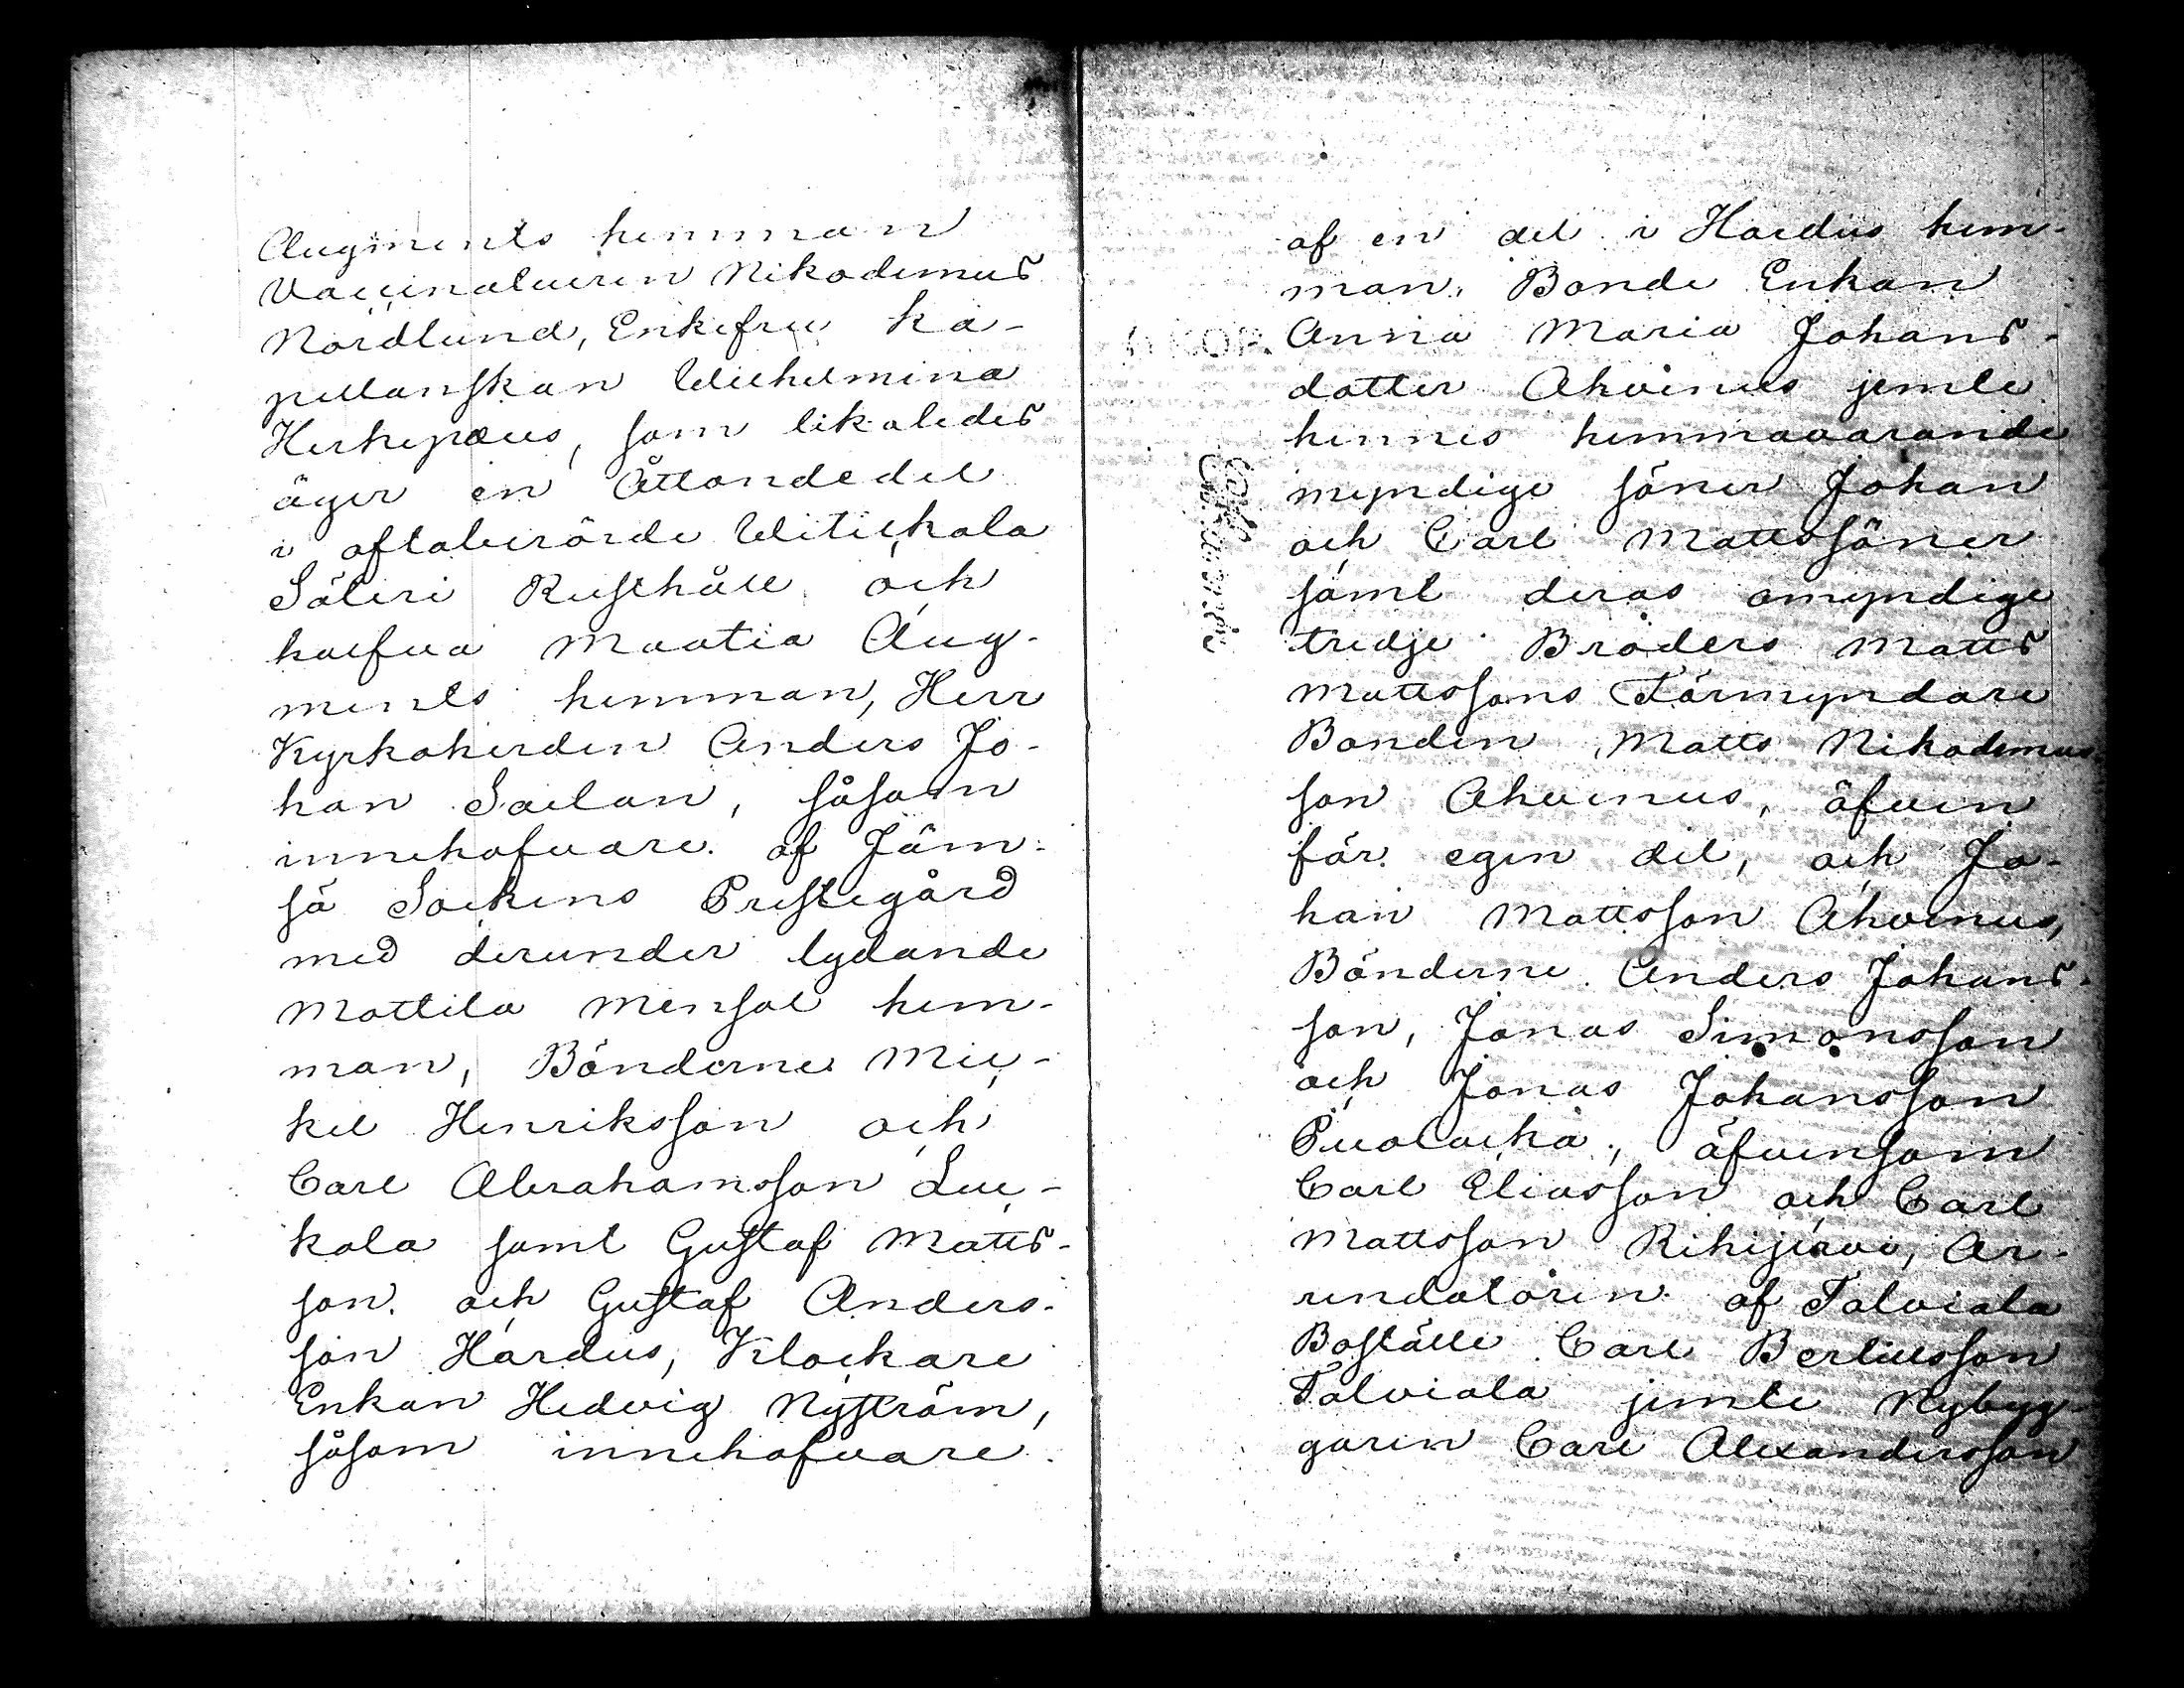 Augments hemman
Vaccinatueren Nikodemus
Nordlund, Enkefru Ka-
pellanskan Wilhelmina
Herkepæus, som likaledes
äger en Åttondedel
i oftaberörde Witickala
Säteri Rusthåll och
halfva Maatia Aug-
ments hemman, Herr
Kyrkoherden Anders Jo-
han Sailan, såsom
innehafvare af Jäm-
sä Sockens Prestegård
med derunder lydande
Mattila Mensal hem-
man, Bönderne Mic-
kel Henriksson och
Carl Abrahamsson Luc-
kala samt Gustaf Matts-
son och Gustaf Anders-
son Hardus, Klockare
Enkan Hedvig Nyström,
såsom innehafvare
af en del i Hardus hem-
man, Bonde Enkan
Anna Maria Johans-
dotter Ahvenus jemte
hennes hemmavarande
myndige söner Johan
och Carl Mattssöner
samt deras omyndige
tredje Broders Matts
Mattssons Förmyndare
Bonden Matts Nikodemus-
son Ahvenus, äfven
för egen del, och Jo-
han Mattsson Ahvenus,
Bönderne Anders Johans-
son, Jonas Simonsson
och Jonas Johansson
Puolacka, äfvensom
Carl Eliasson och Carl
Mattsson Rihijärvi, Ar-
rendatoren af Talviala
Boställe Carl Bertilsson
Talviala jemte Nybyg-
garen Carl Alexandersson